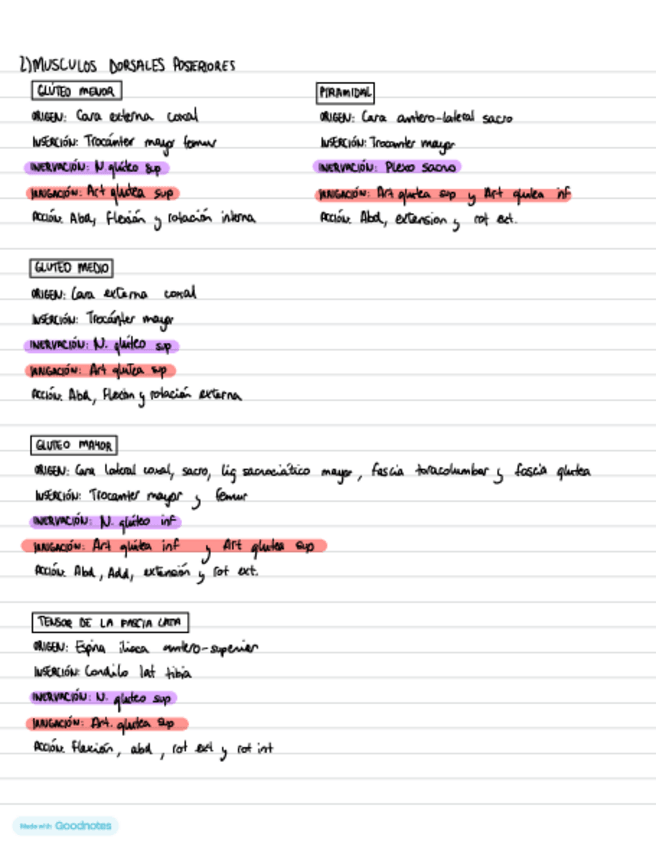 2) MUSCULOS DORSALES POSTERIORES
GLÚTEO MENOR
ORIGEN: Cara externa coxal
INSERCIÓN: Trocánter mayor femur
INERVACIÓN: N. glúteo sup
IRRIGACIÓN: Art glutea sup
ACCIÓN: Abd, Flexión y rotación interna
PIRAMIDAL
ORIGEN: Cara antero-lateral sacro
INSERCIÓN: Trocanter mayor
INERVACIÓN: Plexo sacro
IRRIGACIÓN: Art glutea sup y Art glutea inf
ACCIÓN: Abd, extension y rot ext.
GLUTEO MEDIO
ORIGEN: Cara externa coxal
INSERCIÓN: Trocánter mayor
INERVACIÓN: N. glúteo sup
IRRIGACIÓN: Art glutea sup
ACCIÓN: Abd, Flexión y rotación externa
GLUTEO MAYOR
ORIGEN: Cara lateral coxal, sacro, lig sacrociático mayor, fascia toracolumbar y fascia glutea
INSERCIÓN: Trocanter mayor y femur
INERVACIÓN: N. glúteo inf
IRRIGACIÓN: Art glútea inf y Art glutea sup
ACCIÓN: Abd, Add, extensión y rot ext.
TENSOR DE LA FASCIA LATA
ORIGEN: Espina iliaca antero-superior
INSERCIÓN: Condilo lat tibia
INERVACIÓN: N. gluteo sup
IRRIGACIÓN: Art. glutea sup
ACCIÓN: Flexión, abd, rot ext y rot int
Made with Goodnotes